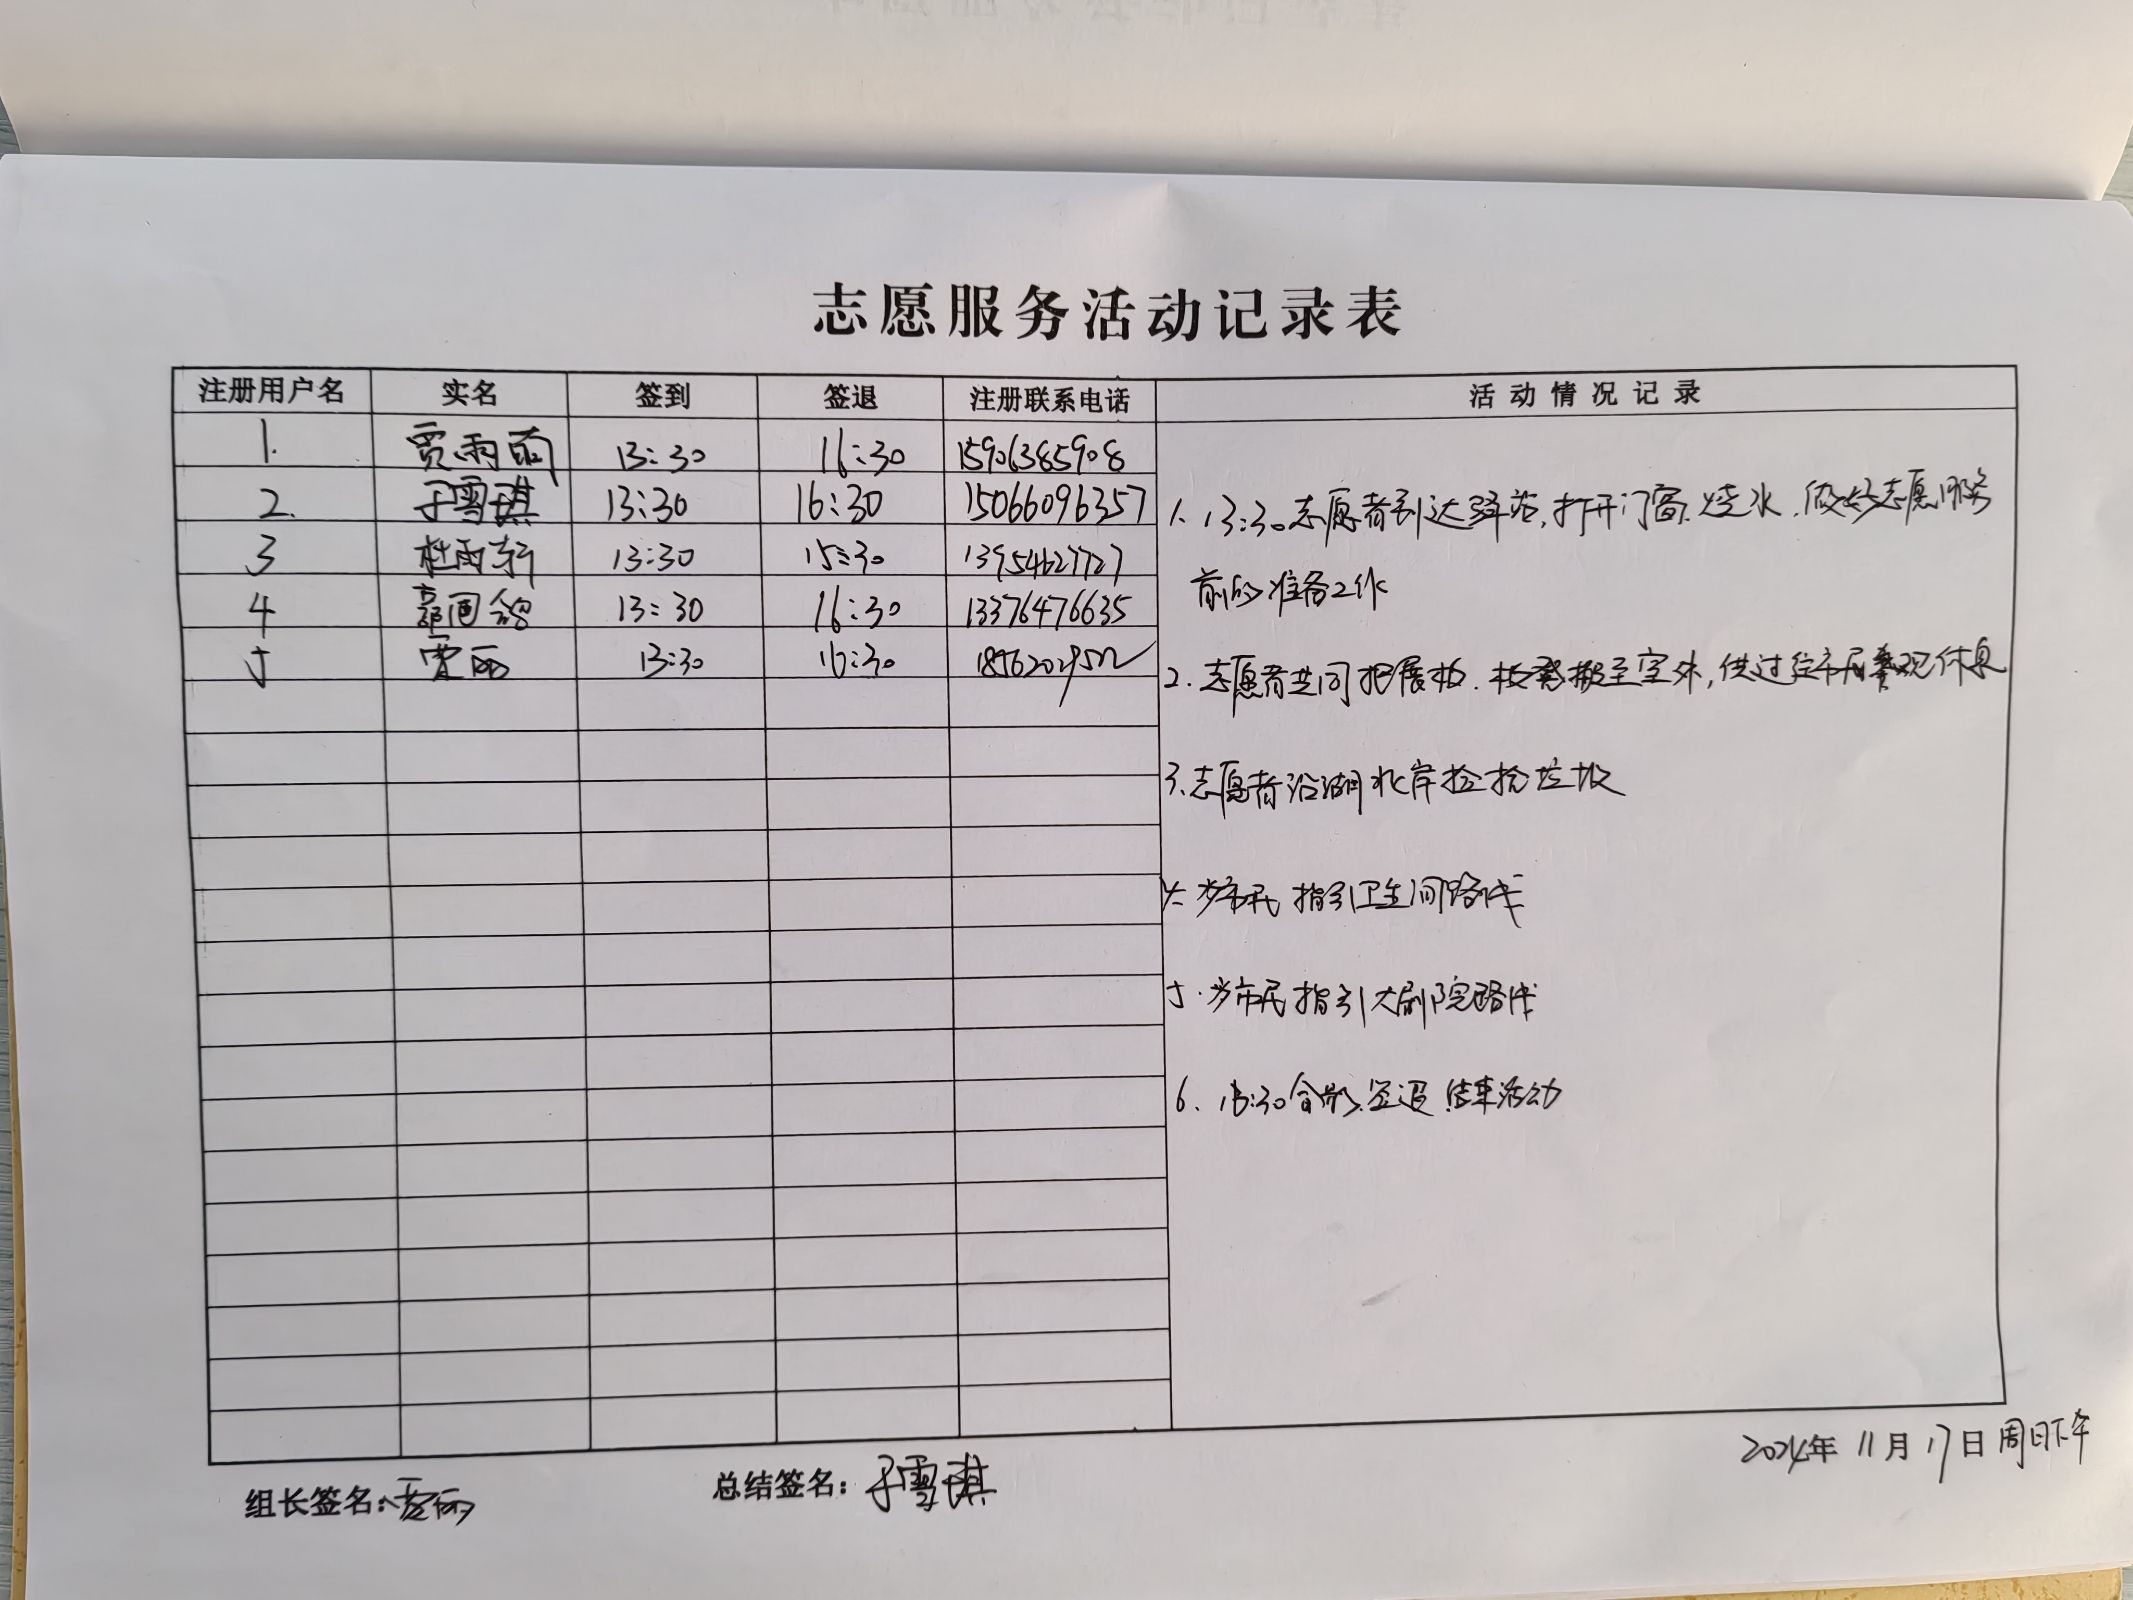 志愿服务活动记录表
注册用户名 实名 签到 签退 注册联系电话 活动情况记录
1. 贾雨萌 13:30 16:30 15906385908
2. 于雪琪 13:30 16:30 15066096357
3 杜雨轩 13:30 15:30 13954627727
4 13:30 16:30 13376476635
5 贾丽 13:30 16:30
1. 13:30志愿者到达驿站,打开门窗、烧水、做好志愿服务
前的准备工作
2. 志愿者共同把展板、板凳搬至室外,供过往市民参观休息
3.志愿者沿湖北岸捡拾垃圾
4. 为市民指引卫生间路线
5. 为市民指引大剧院路线
6. 16:30合影、签退、结束活动
组长签名: 贾丽 总结签名: 于雪琪 2024年 11月17日 周日下午